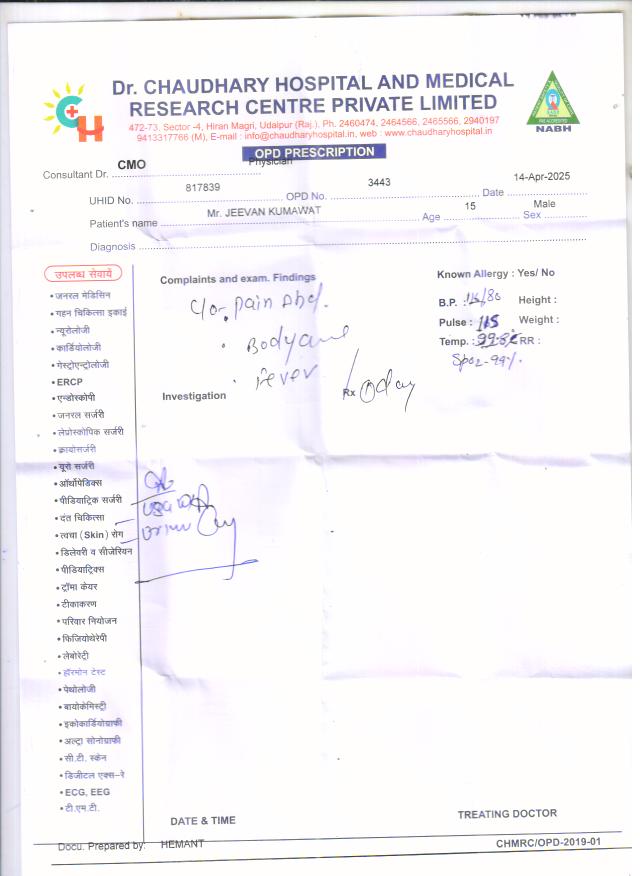 Dr. CHAUDHARY HOSPITAL AND MEDICAL
RESEARCH CENTRE PRIVATE LIMITED
472-73, Sector -4, Hiran Magri, Udaipur (Raj.). Ph. 2460474, 2464566, 2465566, 2940197
9413317766 (M), E-mail : info@chaudharyhospital.in, web : www.chaudharyhospital.in
NABH
OPD PRESCRIPTION
Consultant Dr. CMO Physician
UHID No. 817839 OPD No. 3443 Date 14-Apr-2025
Patient's name Mr. JEEVAN KUMAWAT Age 15 Sex Male
Diagnosis
उपलब्ध सेवायें
Complaints and exam. Findings
Known Allergy : Yes/ No
C/o- Pain Abd.
B.P. : 116/80 Height :
Pulse : 115 Weight :
• Bodyache
Temp. : RR :
SpO2-99%
• Fever
Investigation
Rx
1 day
• जनरल मेडिसिन
• गहन चिकित्सा इकाई
• न्यूरोलोजी
• कार्डियोलोजी
• गेस्ट्रोएन्ट्रोलोजी
• ERCP
• एन्डोस्कोपी
• जनरल सर्जरी
• लेप्रोस्कोपिक सर्जरी
• क्रायोसर्जरी
• यूरो सर्जरी
• ऑर्थोपेडिक्स
• पीडियाट्रिक सर्जरी
• दंत चिकित्सा
• त्वचा (Skin) रोग
• डिलेवरी व सीजेरियन
• पीडियाट्रिक्स
• ट्रॉमा केयर
• टीकाकरण
• परिवार नियोजन
• फिजियोथेरेपी
• लेबोरेट्री
• हॉरमोन टेस्ट
• पेथोलोजी
• बायोकेमिस्ट्री
• इकोकार्डियोग्राफी
• अल्ट्रा सोनोग्राफी
• सी.टी. स्केन
• डिजीटल एक्स-रे
• ECG, EEG
• टी.एम.टी.
DATE & TIME
TREATING DOCTOR
Docu. Prepared by: HEMANT
CHMRC/OPD-2019-01